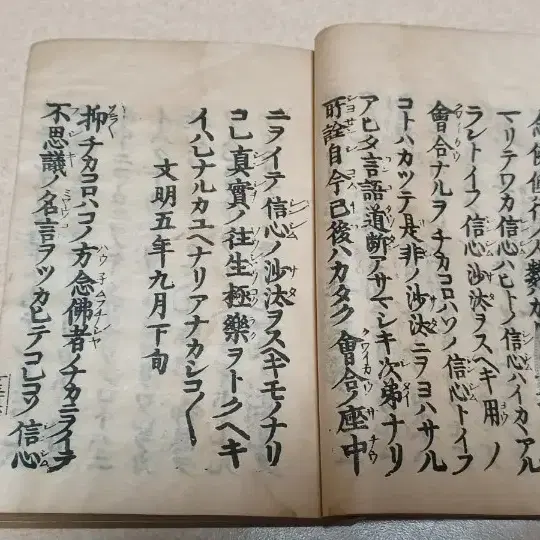 念佛修行ノ人數
マリテワカ信心ハヒトノ信心ハイカヽアル
ラントイフ信心沙汰ヲスヘキ用ノ
會合ナルヲチカコロハソノ信心トイフ
コトハカツテ是非ノ沙汰ニヲヨハサル
アヒタ言語道斷アサマシキ次第ナリ
所詮自今已後ハカタク會合ノ座中
ニヲイテ信心ノ沙汰ヲスヘキモノナリ
コレ真實ノ往生極樂ヲトクヘキ
イハレナルカユヘナリアナカシコ〱
文明五年九月下旬
抑チカコロハコノ方念佛者ノナカニヲイテ
不思議ノ名言ヲツカヒテコレコソ信心